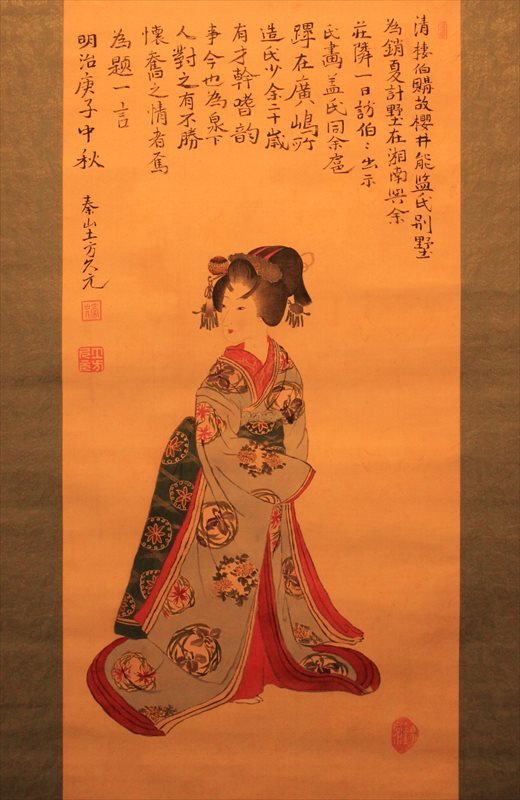 清棲伯購故櫻井能監氏別墅
為銷夏計墅在湘南與余
荘隣一日訪伯々出示
氏畵蓋氏同余扈
蹕在廣嶋所
造氏少余二十歳
有才幹嗜韵
事今也為泉下
人對之有不勝
懐舊之情者焉
為題一言
明治庚子中秋
秦山土方久元
土方